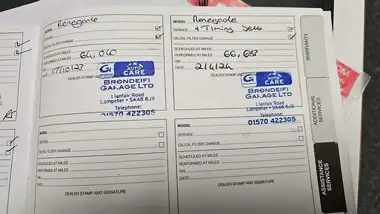 MODEL: Renegade
SERVICE
OIL/OIL FILTER CHANGE
SCHEDULED AT MILES
PERFORMED AT MILES 64,040
DATE
G1 AUTO CARE
BRONDEIFI GARAGE LTD
Llanfair Road
Lampeter • SA48 8JX
Telephone:
01570 422305
DEALER STAMP AND SIGNATURE
MODEL: Renegade
SERVICE + Timing Belt
OIL/OIL FILTER CHANGE
SCHEDULED AT MILES
PERFORMED AT MILES 66,683
VIN
DATE 2/4/24
AUTO CARE
BRONDEIFI GARAGE LTD
Llanfair Road
Lampeter • SA48 8JX
Telephone:
01570 422305
DEALER STAMP AND SIGNATURE
MODEL:
SERVICE
OIL/OIL FILTER CHANGE
SCHEDULED AT MILES
PERFORMED AT MILES
VIN
DATE
DEALER STAMP AND SIGNATURE
MODEL:
SERVICE
OIL/OIL FILTER CHANGE
SCHEDULED AT MILES
PERFORMED AT MILES
VIN
DATE
DEALER STAMP AND SIGNATURE
WARRANTY
ADDITIONAL SERVICES
ASSISTANCE SERVICES